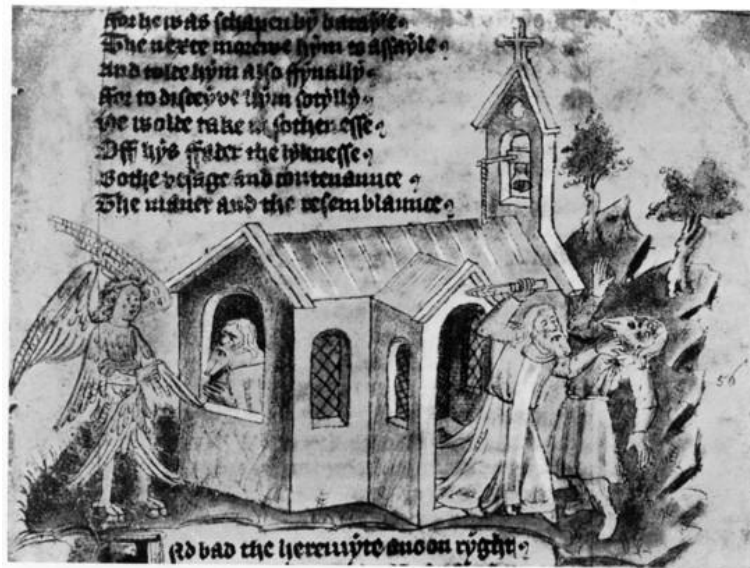 ffor he was schapen by batayle
The nexte morewe hym to assayle
And wolde hym also ffynally
ffor to disceyve hym sotylly
He wolde take in sothenesse
Off hys ffader the lyknesse
Bothe vysage and contenaunce
The maner and the resemblaunce
56
And bad the heremyte anoon ryght